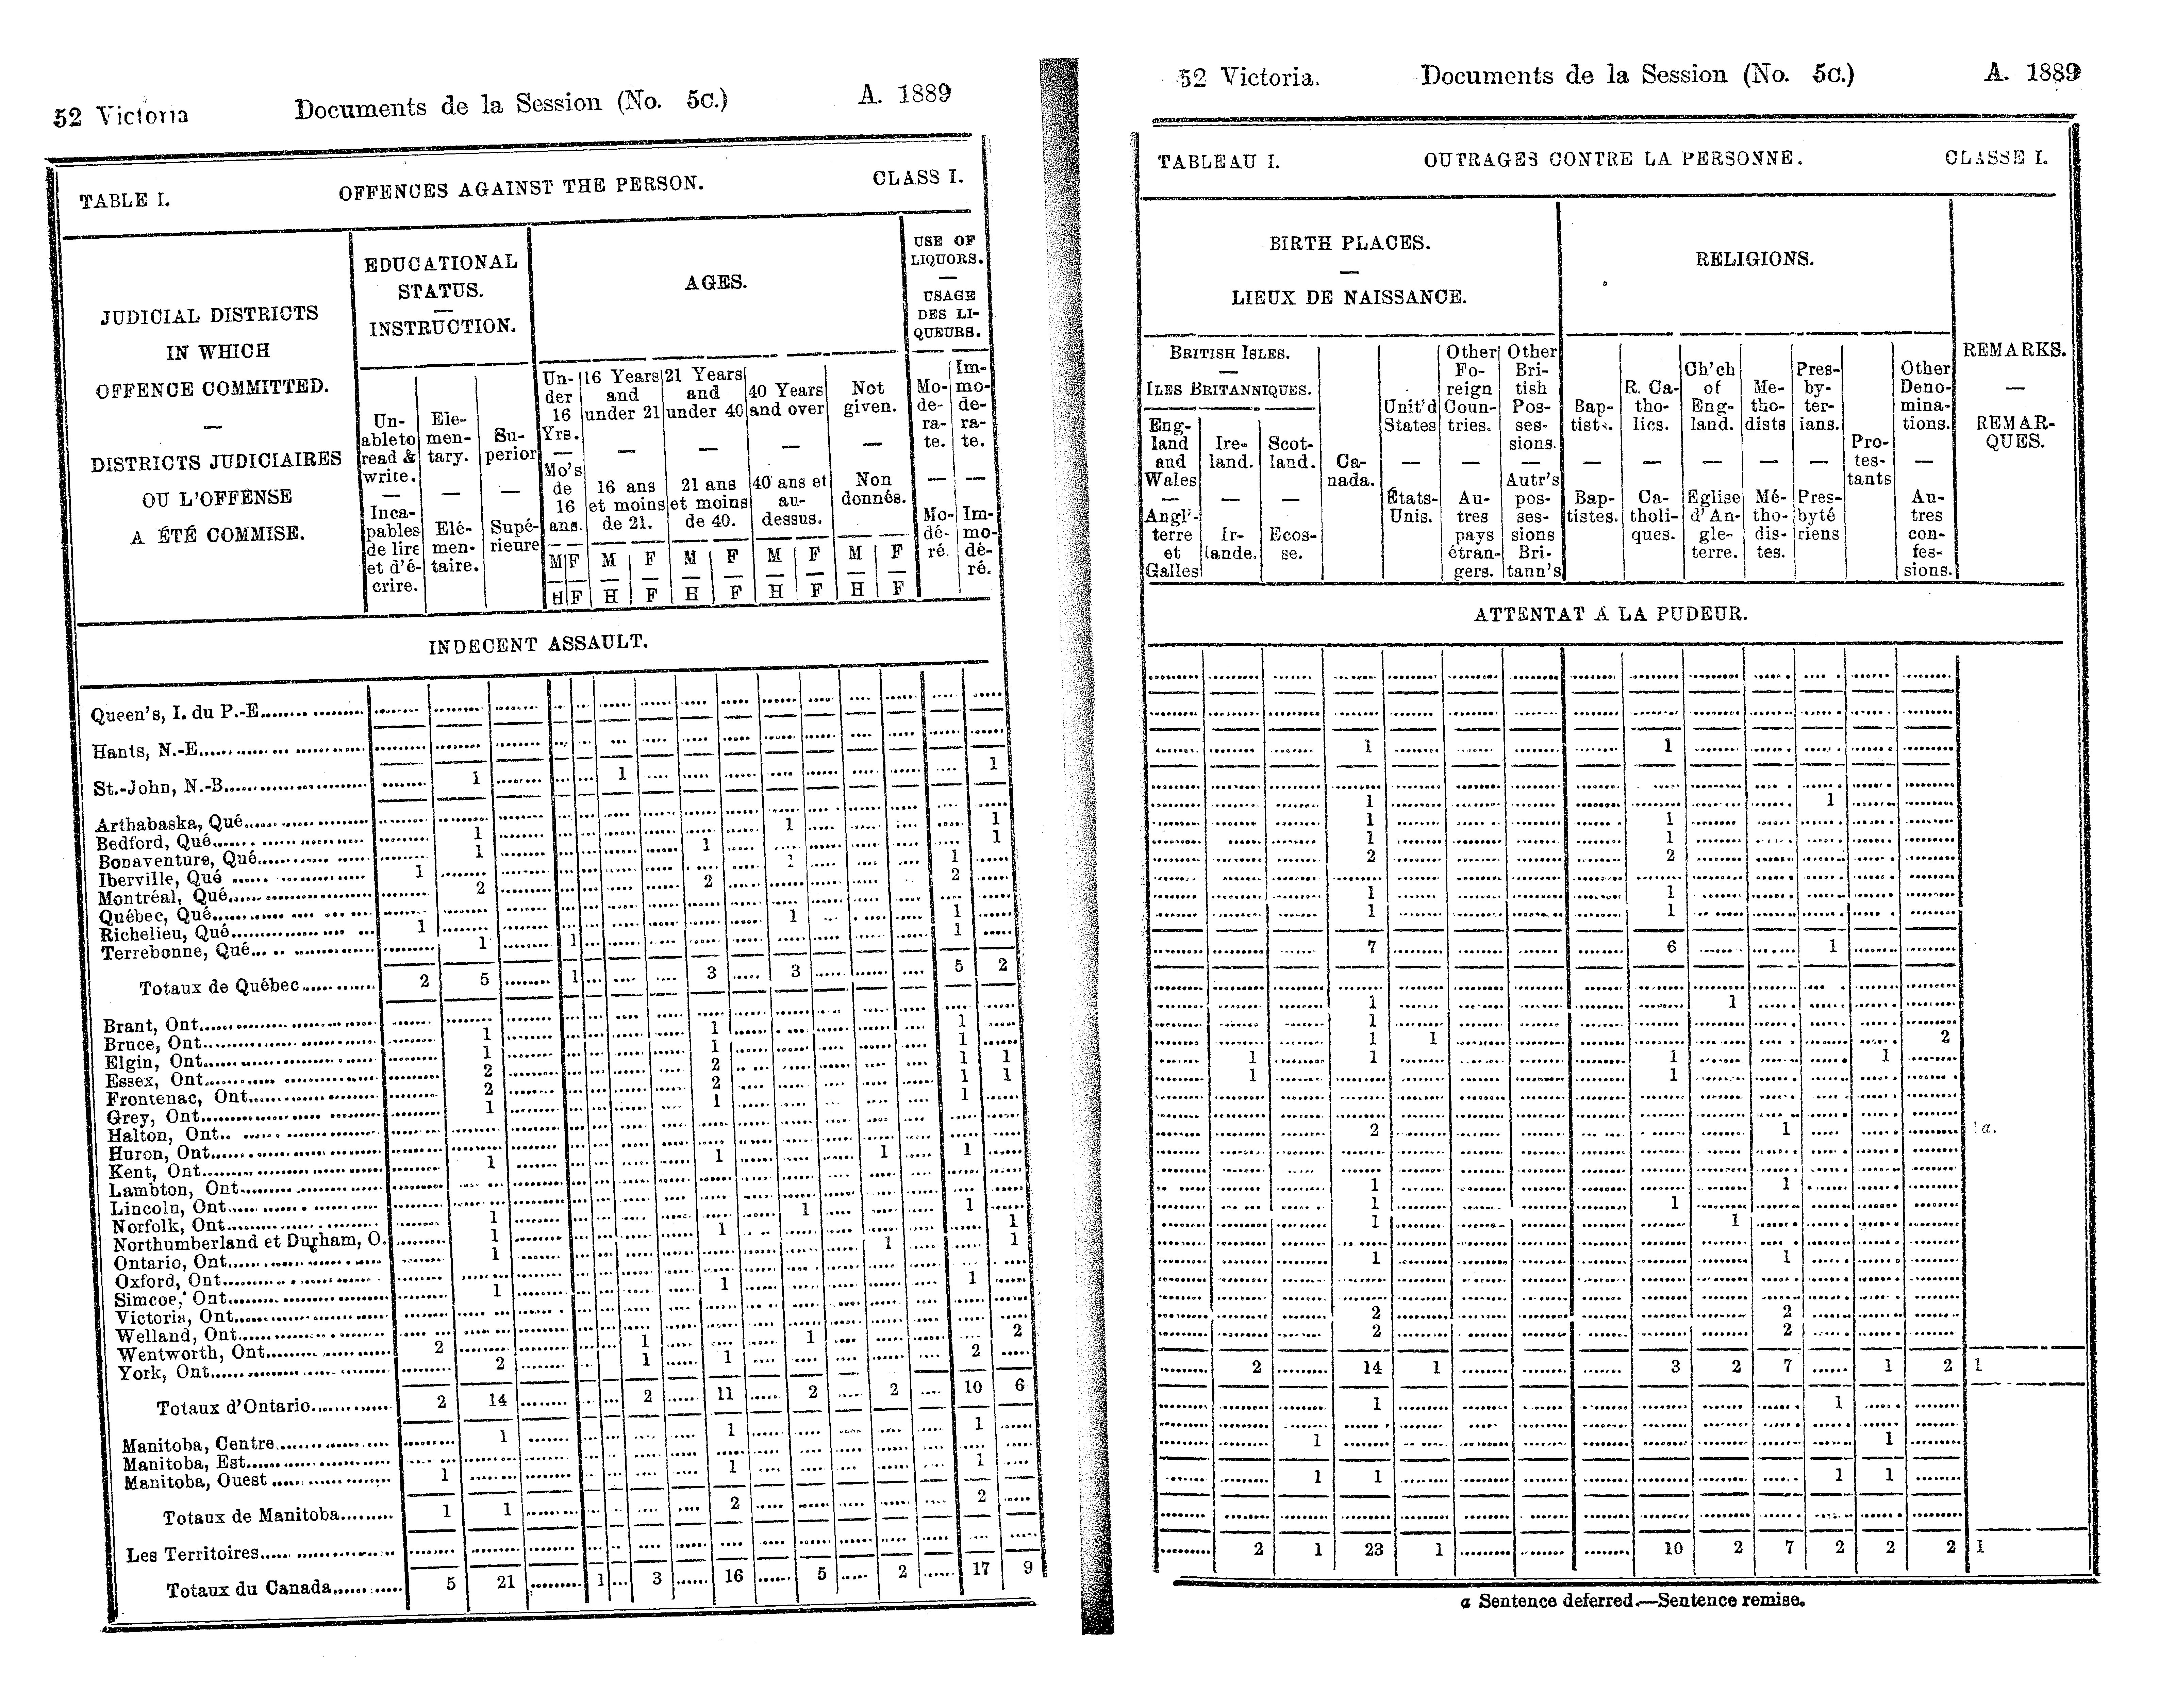 52 Victoria Documents de la Session (No. 5c.) A. 1889
TABLE I. OFFENCES AGAINST THE PERSON. CLASS I.
JUDICIAL DISTRICTS
IN WHICH
OFFENCE COMMITTED.
—
DISTRICTS JUDICIAIRES
OU L'OFFENSE
A ÉTÉ COMMISE.
EDUCATIONAL
STATUS.
—
INSTRUCTION.
Un-
able to
read &
write.
—
Inca-
pables
de lire
et d'é-
crire.
Ele-
men-
tary.
—
Elé-
men-
taire.
Su-
perior
—
Supé-
rieure
AGES.
Un-
der
16
Yrs.
—
Mo's
de
16
ans.
16 Years
and
under 21
—
16 ans
et moins
de 21.
21 Years
and
under 40
—
21 ans
et moins
de 40.
40 Years
and over
—
40 ans et
au-
dessus.
Not
given.
—
Non
donnés.
M F M F M F M F M F
H F H F H F H F H F
USE OF
LIQUORS.
—
USAGE
DES LI-
QUEURS.
Mo-
de-
ra-
te.
—
Mo-
dé-
ré.
Im-
mo-
de-
ra-
te.
—
Im-
mo-
dé-
ré.
INDECENT ASSAULT.
Queen's, I. du P.-E.
Hants, N.-E.
St.-John, N.-B. 1 1 1
Arthabaska, Qué
Bedford, Qué 1 1 1
Bonaventure, Qué 1 1 1
Iberville, Qué 1 1 1
Montréal, Qué 2 2 2
Québec, Qué
Richelieu, Qué 1 1 1
Terrebonne, Qué 1 1 1
Totaux de Québec 2 5 1 3 3 5 2
Brant, Ont
Bruce, Ont 1 1 1
Elgin, Ont 1 1 1
Essex, Ont 2 2 1 1
Frontenac, Ont 2 2 1 1
Grey, Ont 1 1 1
Halton, Ont
Huron, Ont
Kent, Ont 1 1 1 1
Lambton, Ont
Lincoln, Ont
Norfolk, Ont 1 1 1
Northumberland et Durham, O. 1 1 1
Ontario, Ont 1 1 1
Oxford, Ont
Simcoe, Ont 1 1 1
Victoria, Ont
Welland, Ont
Wentworth, Ont 2 1 1 2
York, Ont 2 1 1 2
Totaux d'Ontario 2 14 2 11 2 2 10 6
Manitoba, Centre 1 1 1
Manitoba, Est
Manitoba, Ouest 1 1 1
Totaux de Manitoba 1 1 2 2
Les Territoires
Totaux du Canada 5 21 1 3 16 5 2 17 9
52 Victoria. Documents de la Session (No. 5c.) A. 1889
TABLEAU I. OUTRAGES CONTRE LA PERSONNE. CLASSE I.
BIRTH PLACES.
—
LIEUX DE NAISSANCE.
BRITISH ISLES.
ILES BRITANNIQUES.
Eng-
land
and
Wales
—
Angl'-
terre
et
Galles
Ire-
land.
—
Ir-
lande.
Scot-
land.
—
Ecos-
se.
Ca-
nada.
Unit'd
States
—
États-
Unis.
Other
Fo-
reign
Coun-
tries.
—
Au-
tres
pays
étran-
gers.
Other
Bri-
tish
Pos-
ses-
sions.
—
Autr's
pos-
ses-
sions
Bri-
tann's
RELIGIONS.
Bap-
tists.
—
Bap-
tistes.
R. Ca-
tho-
lics.
—
Ca-
tholi-
ques.
Ch'ch
of
Eng-
land.
—
Eglise
d'An-
gle-
terre.
Me-
tho-
dists
—
Mé-
tho-
dis-
tes.
Pres-
by-
ter-
ians.
—
Pres-
byté
riens
Pro-
tes-
tants
Other
Deno-
mina-
tions.
—
Au-
tres
con-
fes-
sions.
REMARKS.
—
REMAR-
QUES.
ATTENTAT A LA PUDEUR.
1 1
1 1
1 1
1 1
2 2
1 1
1 1
7 6 1
1 1
1
1 1 2
1 1 1 1
1 1
2 1 a.
1 1
1 1
1 1
1 1
2 2
2 2
2 14 1 3 2 7 1 2 1
1 1
1 1
1 1 1 1
2 1 23 1 10 2 7 2 2 2 1
a Sentence deferred.—Sentence remise.